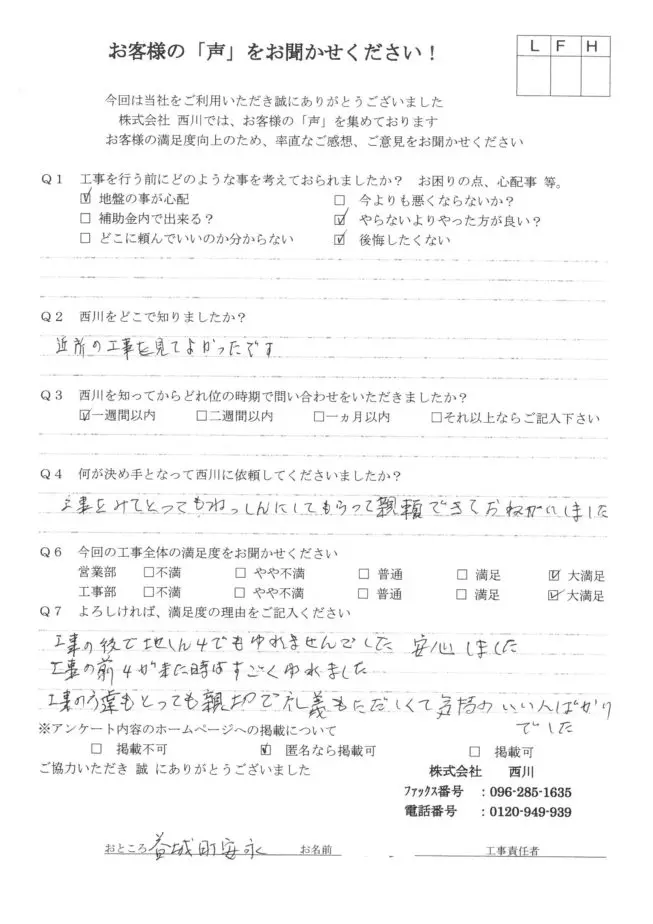 お客様の「声」をお聞かせください！
L F H
今回は当社をご利用いただき誠にありがとうございました
株式会社 西川では、お客様の「声」を集めております
お客様の満足度向上のため、率直なご感想、ご意見をお聞かせください
Q1 工事を行う前にどのような事を考えておられましたか？ お困りの点、心配事 等。
☑ 地盤の事が心配 □ 今よりも悪くならないか？
□ 補助金内で出来る？ ☑ やらないよりやった方が良い？
□ どこに頼んでいいのか分からない ☑ 後悔したくない
Q2 西川をどこで知りましたか？
近所の工事を見てよかったです
Q3 西川を知ってからどれ位の時期で問い合わせをいただきましたか？
☑一週間以内 □二週間以内 □一ヵ月以内 □それ以上ならご記入下さい
Q4 何が決め手となって西川に依頼してくださいましたか？
工事をみてとってもねっしんにしてもらって親頼できておねがいしました
Q6 今回の工事全体の満足度をお聞かせください
営業部 □不満 □ やや不満 □ 普通 □ 満足 ☑ 大満足
工事部 □不満 □ やや不満 □ 普通 □ 満足 ☑ 大満足
Q7 よろしければ、満足度の理由をご記入ください
工事の後で地しん4でもゆれませんでした 安心しました
工事の前4が来た時はすごくゆれました
工事の方達もとっても親切で礼義もただしくて気持のいい人ばかり
でした
※アンケート内容のホームページへの掲載について
□ 掲載不可 ☑ 匿名なら掲載可 □ 掲載可
ご協力いただき 誠 にありがとうございました
株式会社 西川
ﾌｧｯｸｽ番号 ：096-285-1635
電話番号 ：0120-949-939
おところ 益城町安永 お名前 工事責任者